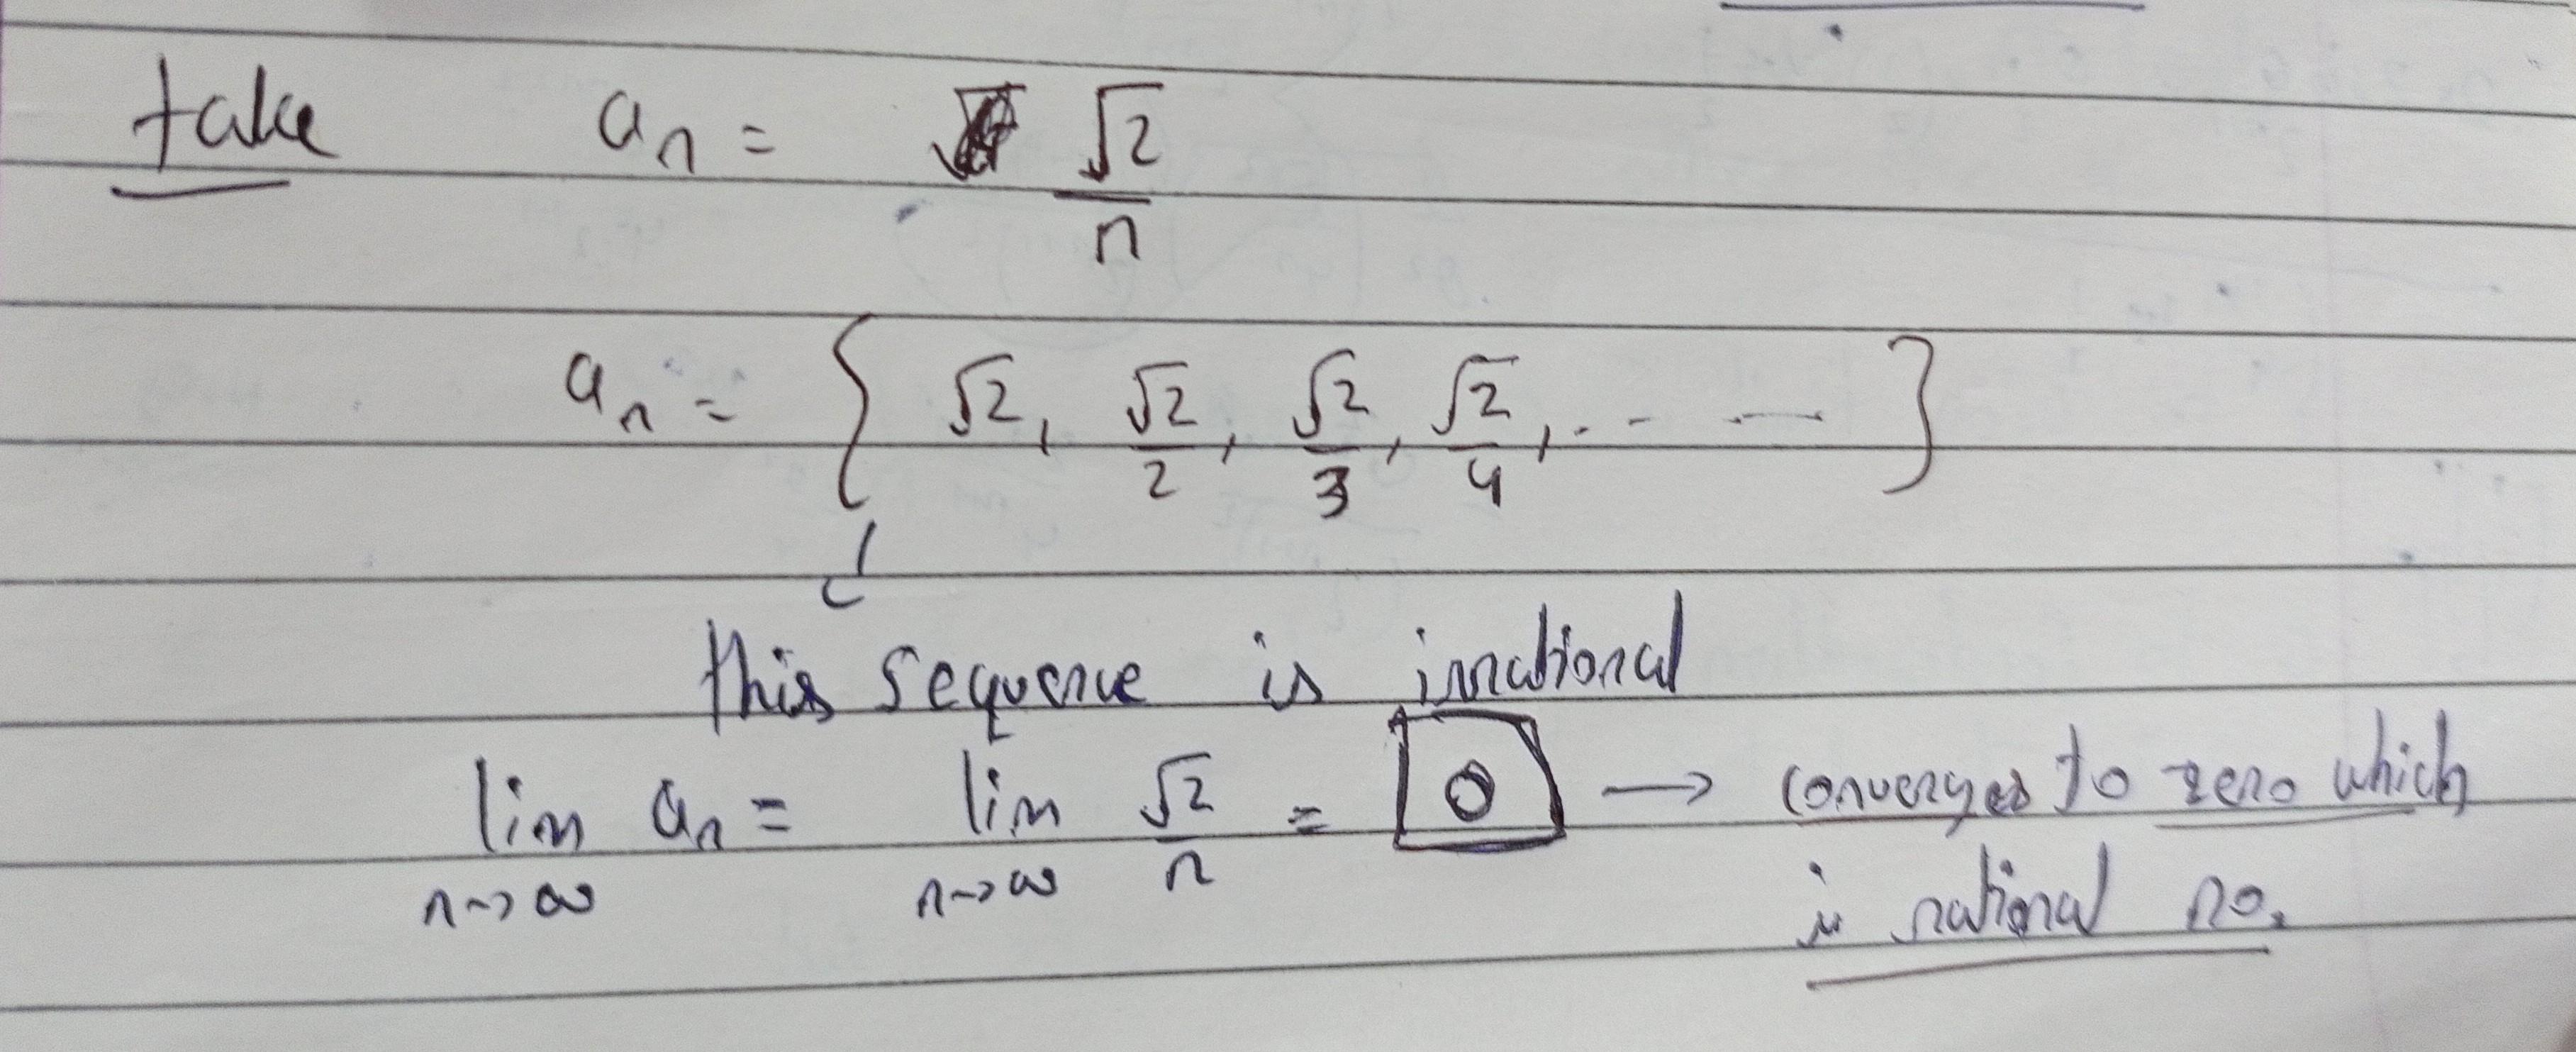 take aₙ = √2/n
aₙ = { √2, √2/2, √2/3, √2/4, ..- — }
this sequence is irrational
lim n→∞ aₙ = lim n→∞ √2/n = 0 → converges to zero which
is rational no.